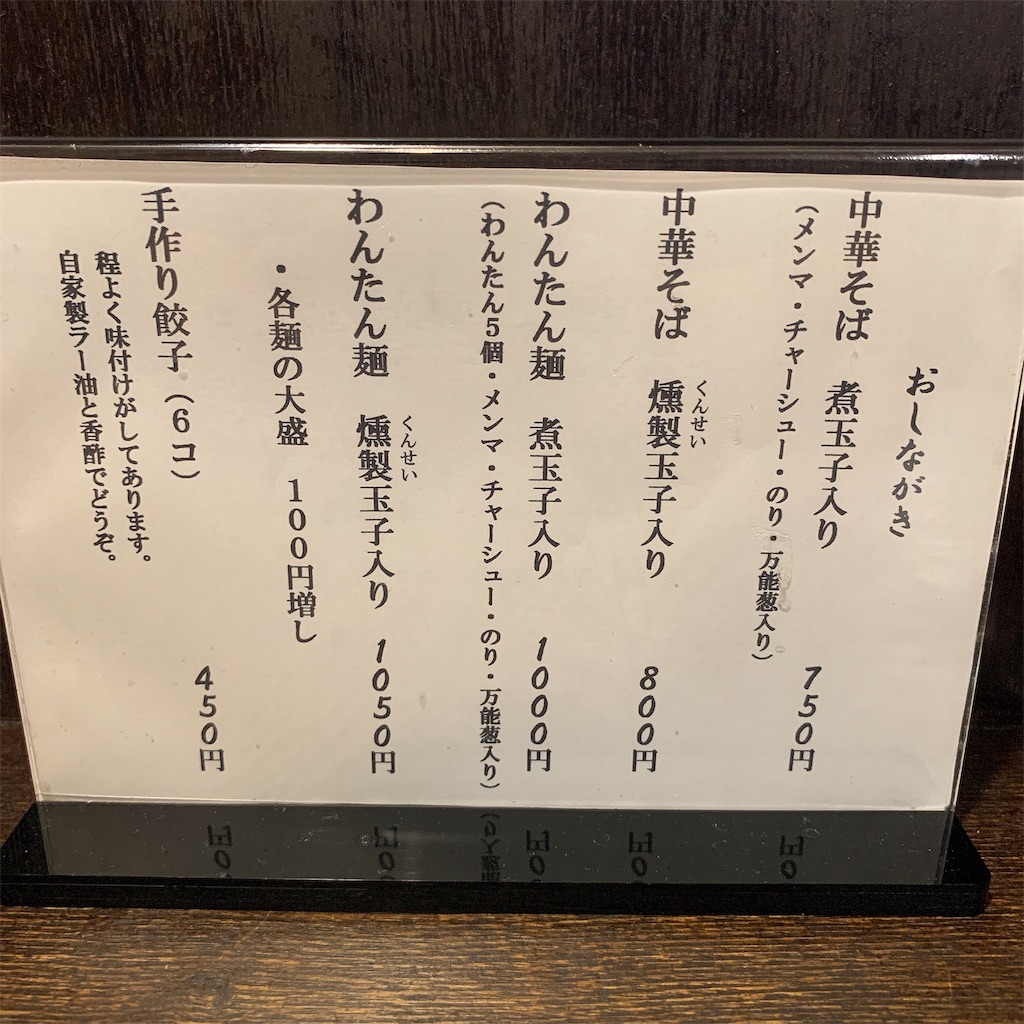 おしながき
中華そば 煮玉子入り 750円
(メンマ・チャーシュー・のり・万能葱入り)
中華そば 燻製玉子入り 800円
くんせい
わんたん麺 煮玉子入り 1000円
(わんたん5個・メンマ・チャーシュー・のり・万能葱入り)
わんたん麺 燻製玉子入り 1050円
くんせい
・各麺の大盛 100円増し
手作り餃子(6コ) 450円
程よく味付けがしてあります。
自家製ラー油と香酢でどうぞ。